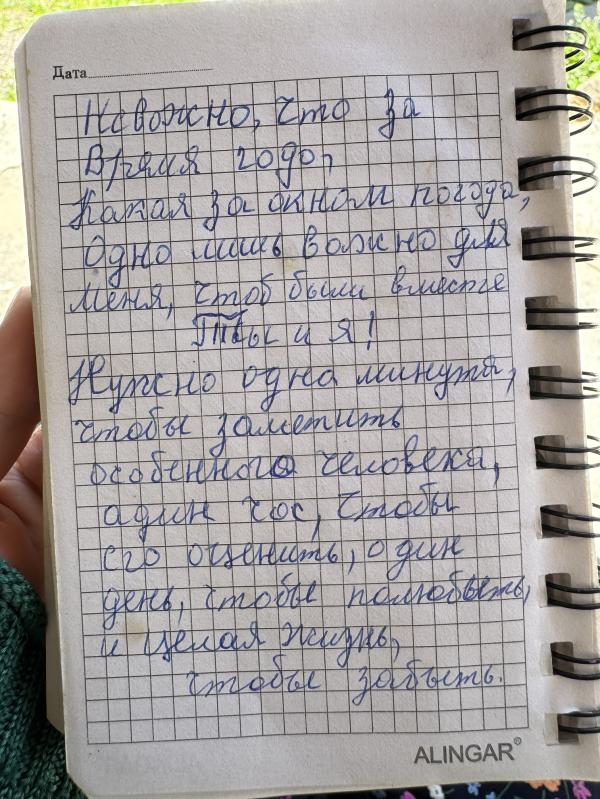 Дата
Неважно, что за
время года,
Какая за окном погода,
Одно лишь важно для
меня, чтоб были вместе
Ты и я!
Нужно одна минута,
чтобы заметить
особенного человека,
адин час, чтобы
его оценить, один
день, чтобы полюбыть,
и целая жизнь,
чтобы забыть.
ALINGAR®